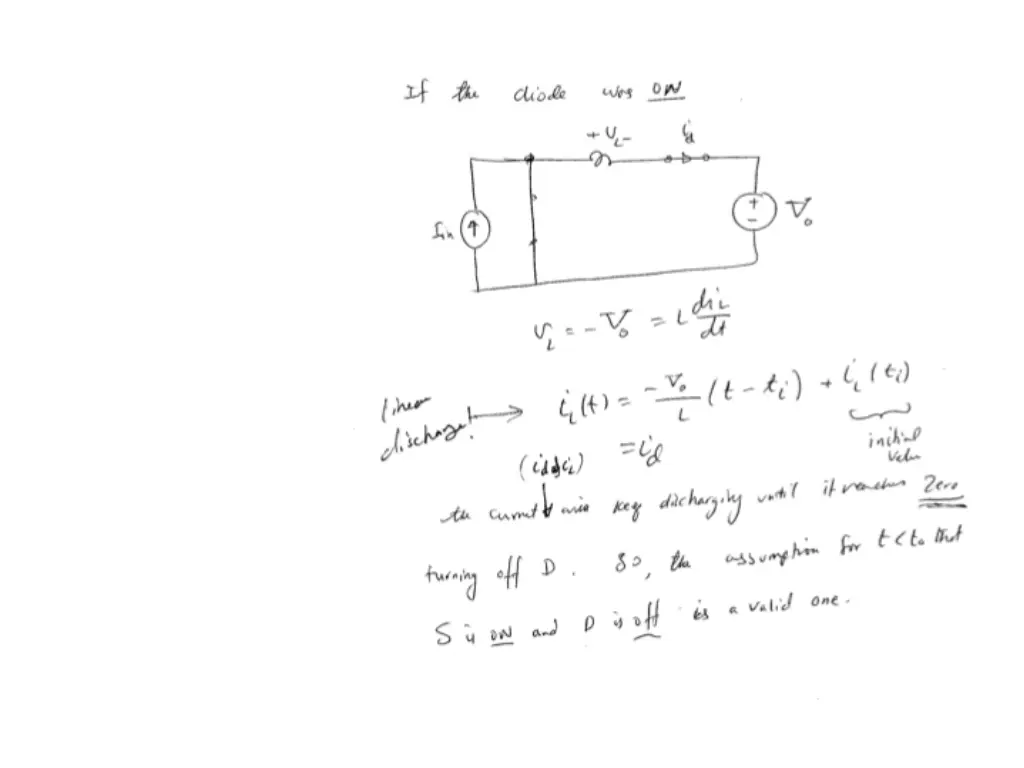 If the diode was ON
+ V_L -
i_d
I_in
+
-
V_o
V_L = -V_o = L di_L/dt
linear discharge! → i_L(t) = -V_o/L (t - t_i) + i_L(t_i)
initial value
= i_d
the current keep discharging until it reaches Zero
turning off D. So, the assumption for t<t_o that
S is ON and D is off is a valid one.